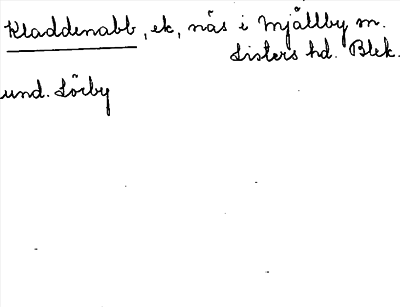 Kladdenabb, ek, näs i Mjällby sn.
Listers hd. Blek.
und. Lörby